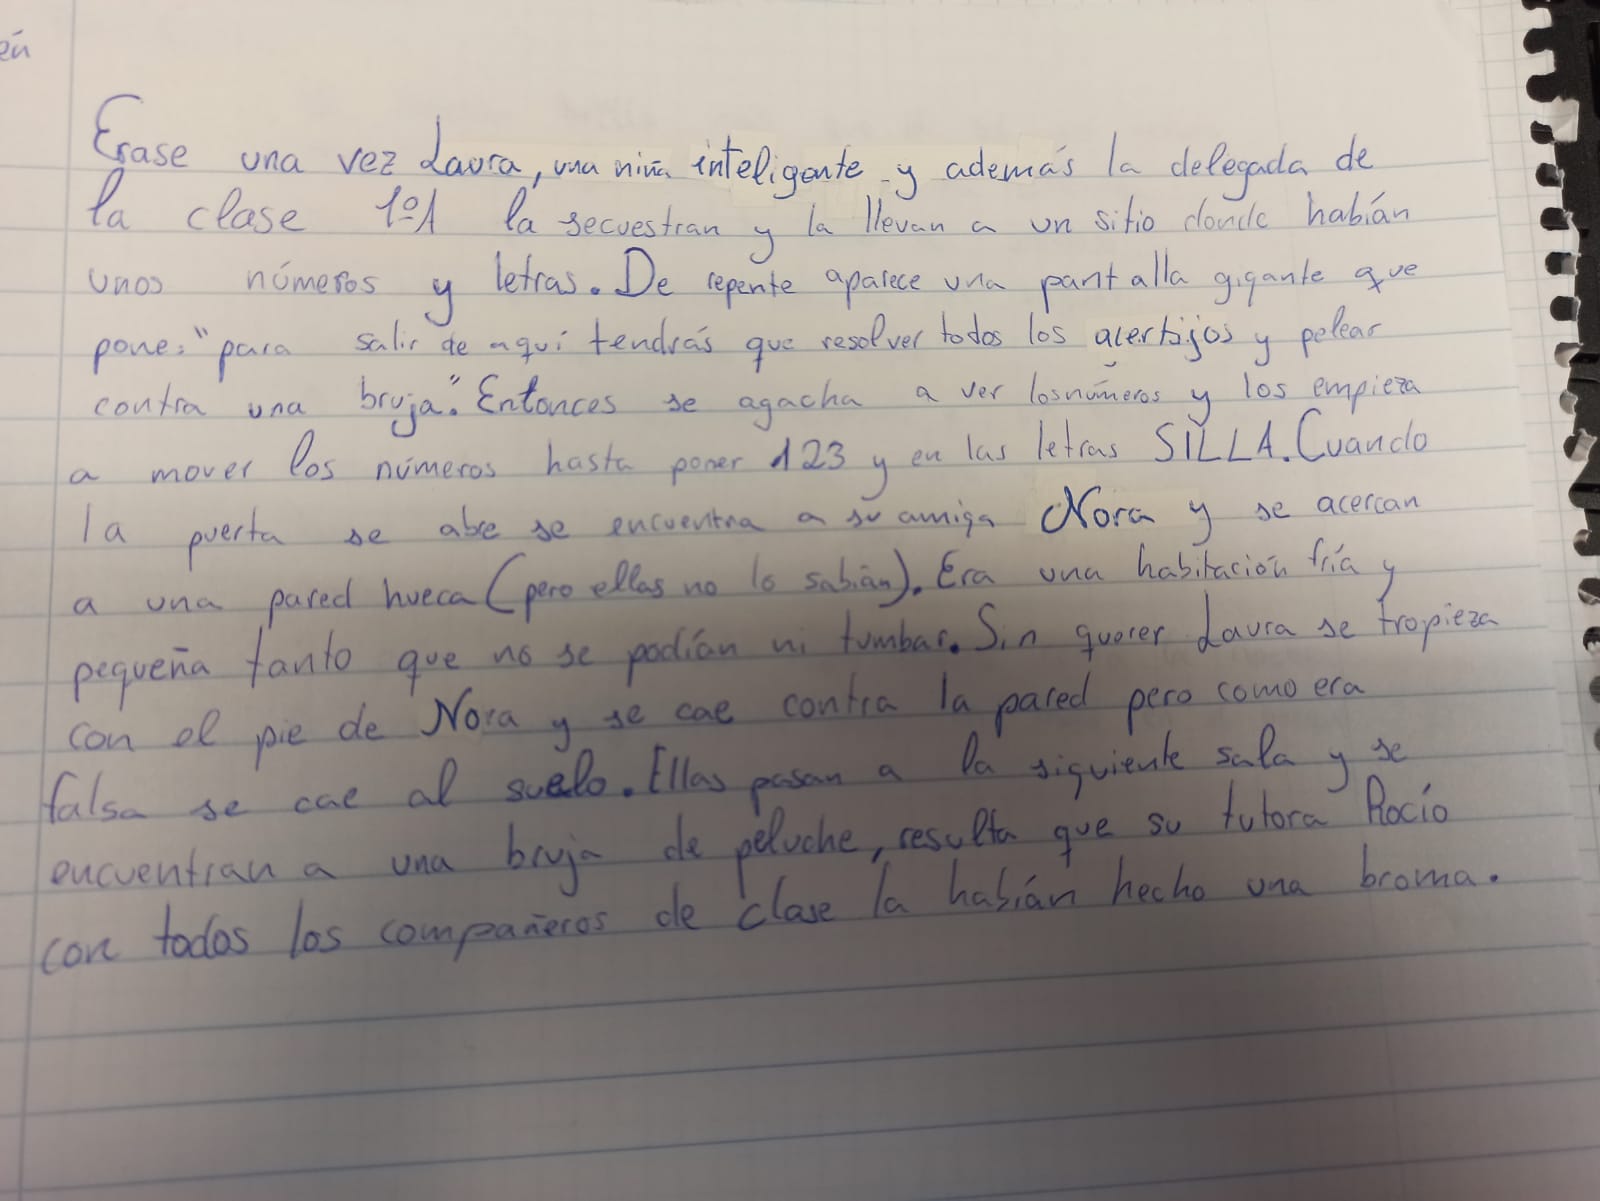 én
Erase una vez Laura, una niña inteligente y además la delegada de
la clase 1ºA la secuestran y la llevan a un sitio donde habían
unos números y letras. De repente aparece una pantalla gigante que
pone: "para salir de aquí tendrás que resolver todos los acertijos y pelear
contra una bruja". Entonces se agacha a ver los números y los empieza
a mover los números hasta poner 123 y en las letras SILLA. Cuando
la puerta se abre se encuentra a su amiga Nora y se acercan
a una pared hueca (pero ellas no lo sabían). Era una habitación fría y
pequeña tanto que no se podían ni tumbar. Sin querer Laura se tropieza
con el pie de Nora y se cae contra la pared pero como era
falsa se cae al suelo. Ellas pasan a la siguiente sala y se
encuentran a una bruja de peluche, resulta que su tutora Rocío
con todos los compañeros de clase la habían hecho una broma.